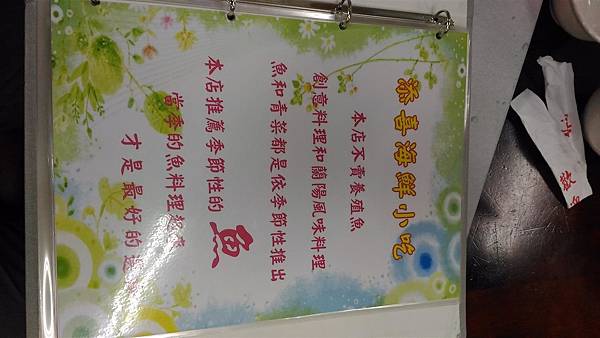 恭喜海鮮小吃
本店不賣養殖魚
創意料理和蘭陽風味料理
魚和青菜都是依季節性推出
本店推薦季節性的魚
當季的魚料理
才是最好的